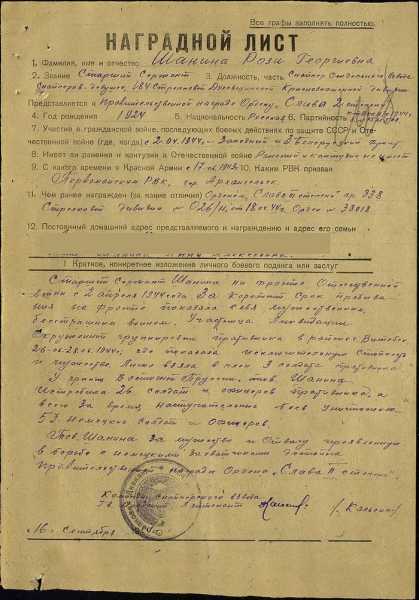 Все графы заполнять полностью.
НАГРАДНОЙ ЛИСТ
1. Фамилия, имя и отчество Шанина Роза Георгиевна
2. Звание Старший Сержант 3. Должность, часть Снайпер
184 Стрелковой Краснознаменной дивизии
Представляется к правительственной награде Ордену, Слава 2 степени
4. Год рождения 1924 5. Национальность Русская 6. Партийность
7. Участие в гражданской войне, последующих боевых действиях по защите СССР и Оте-
чественной войне (где, когда) с 2.04.1944г. Западный и 3 Белорусский фронт
8. Имеет ли ранения и контузии в Отечественной войне Ранений и контузий не имеет
9. С какого времени в Красной Армии с 10. Каким РВК призван
Первомайским РВК, гор Архангельск
11. Чем ранее награжден (за какие отличия) Орденом, Слава степени" пр. 338
Стрелковой дивизии № 026/н от 18.05.44г. Орден №
12. Постоянный домашний адрес представляемого к награждению и адрес его семьи
I Краткое, конкретное изложение личного боевого подвига или заслуг
Старший Сержант Шанина на фронте Отечественной
войны с 2 апреля 1944 года. За короткий срок пребыва-
ния на фронте показала себя мужественным,
бесстрашным воином. Участница ликвидации
окруженной группировки противника в районе Витебск
26-28.06.44г., где показала исключительную
и мужество. Лично взяла в плен 3 солдата противника
У границ Восточной Пруссии, тов. Шанина
истребила 26 солдат и офицеров противника, а
всего за время наступательных боев уничтожила
53 немецких солдат и офицеров.
Тов. Шанина за мужество и отвагу проявленную
в борьбе с немецкими захватчиками достойна
правительственной награды Ордена "Слава II степени".
Командир снайперского взвода
Гв. Лейтенант
16 Сентября